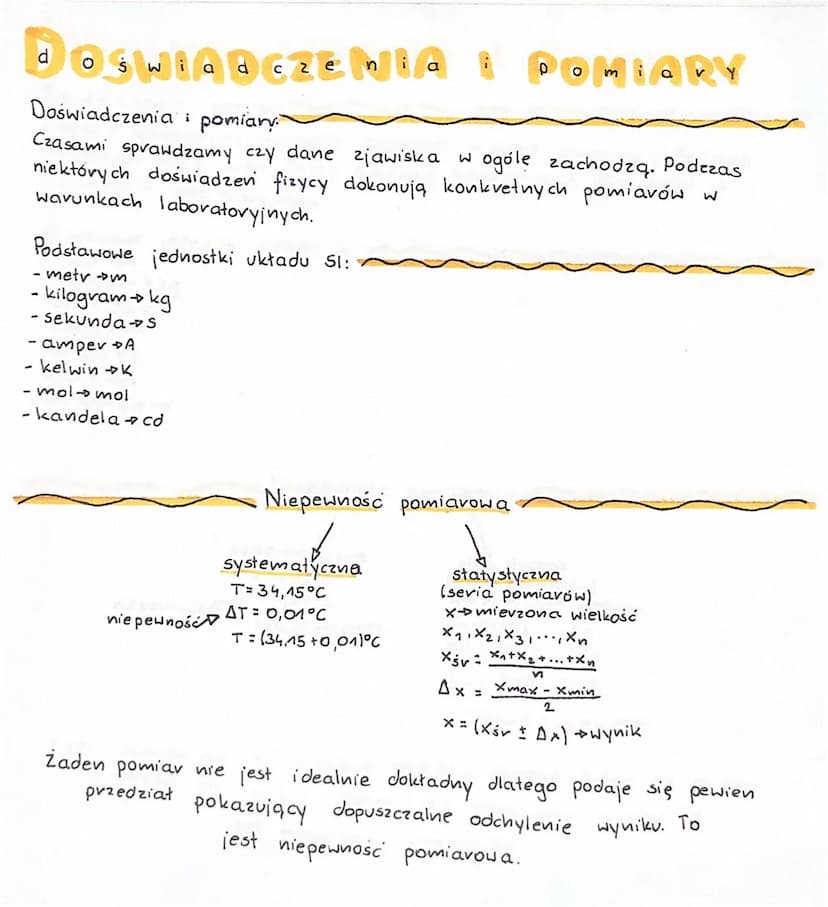 DOŚWIADCZENIA I POMIARY
Doświadczenia i pomiary:
Czasami sprawdzamy czy dane zjawiska w ogólę zachodzą. Podczas
niektórych doświadzeń fizycy dokonują konkretnych pomiarów w
warunkach laboratoryjnych.
Podstawowe jednostki układu SI:
- metr → m
- kilogram → kg
- sekunda → s
- amper → A
- kelwin → K
- mol → mol
- kandela → cd
Niepewność pomiarowa
systematyczna
T = 34,15°C
niepewność → ΔT = 0,01°C
T = (34,15 + 0,01)°C
statystyczna
(seria pomiarów)
x → mierzona wielkość
x₁, x₂, x₃, ..., xₙ
xśr = x₁ + x₂ + ... + xₙ / n
Δx = xmax - xmin / 2
x = (xśr ± Δx) → wynik
Żaden pomiar nie jest idealnie dokładny dlatego podaje się pewien
przedział pokazujący dopuszczalne odchylenie wyniku. To
jest niepewność pomiarowa.